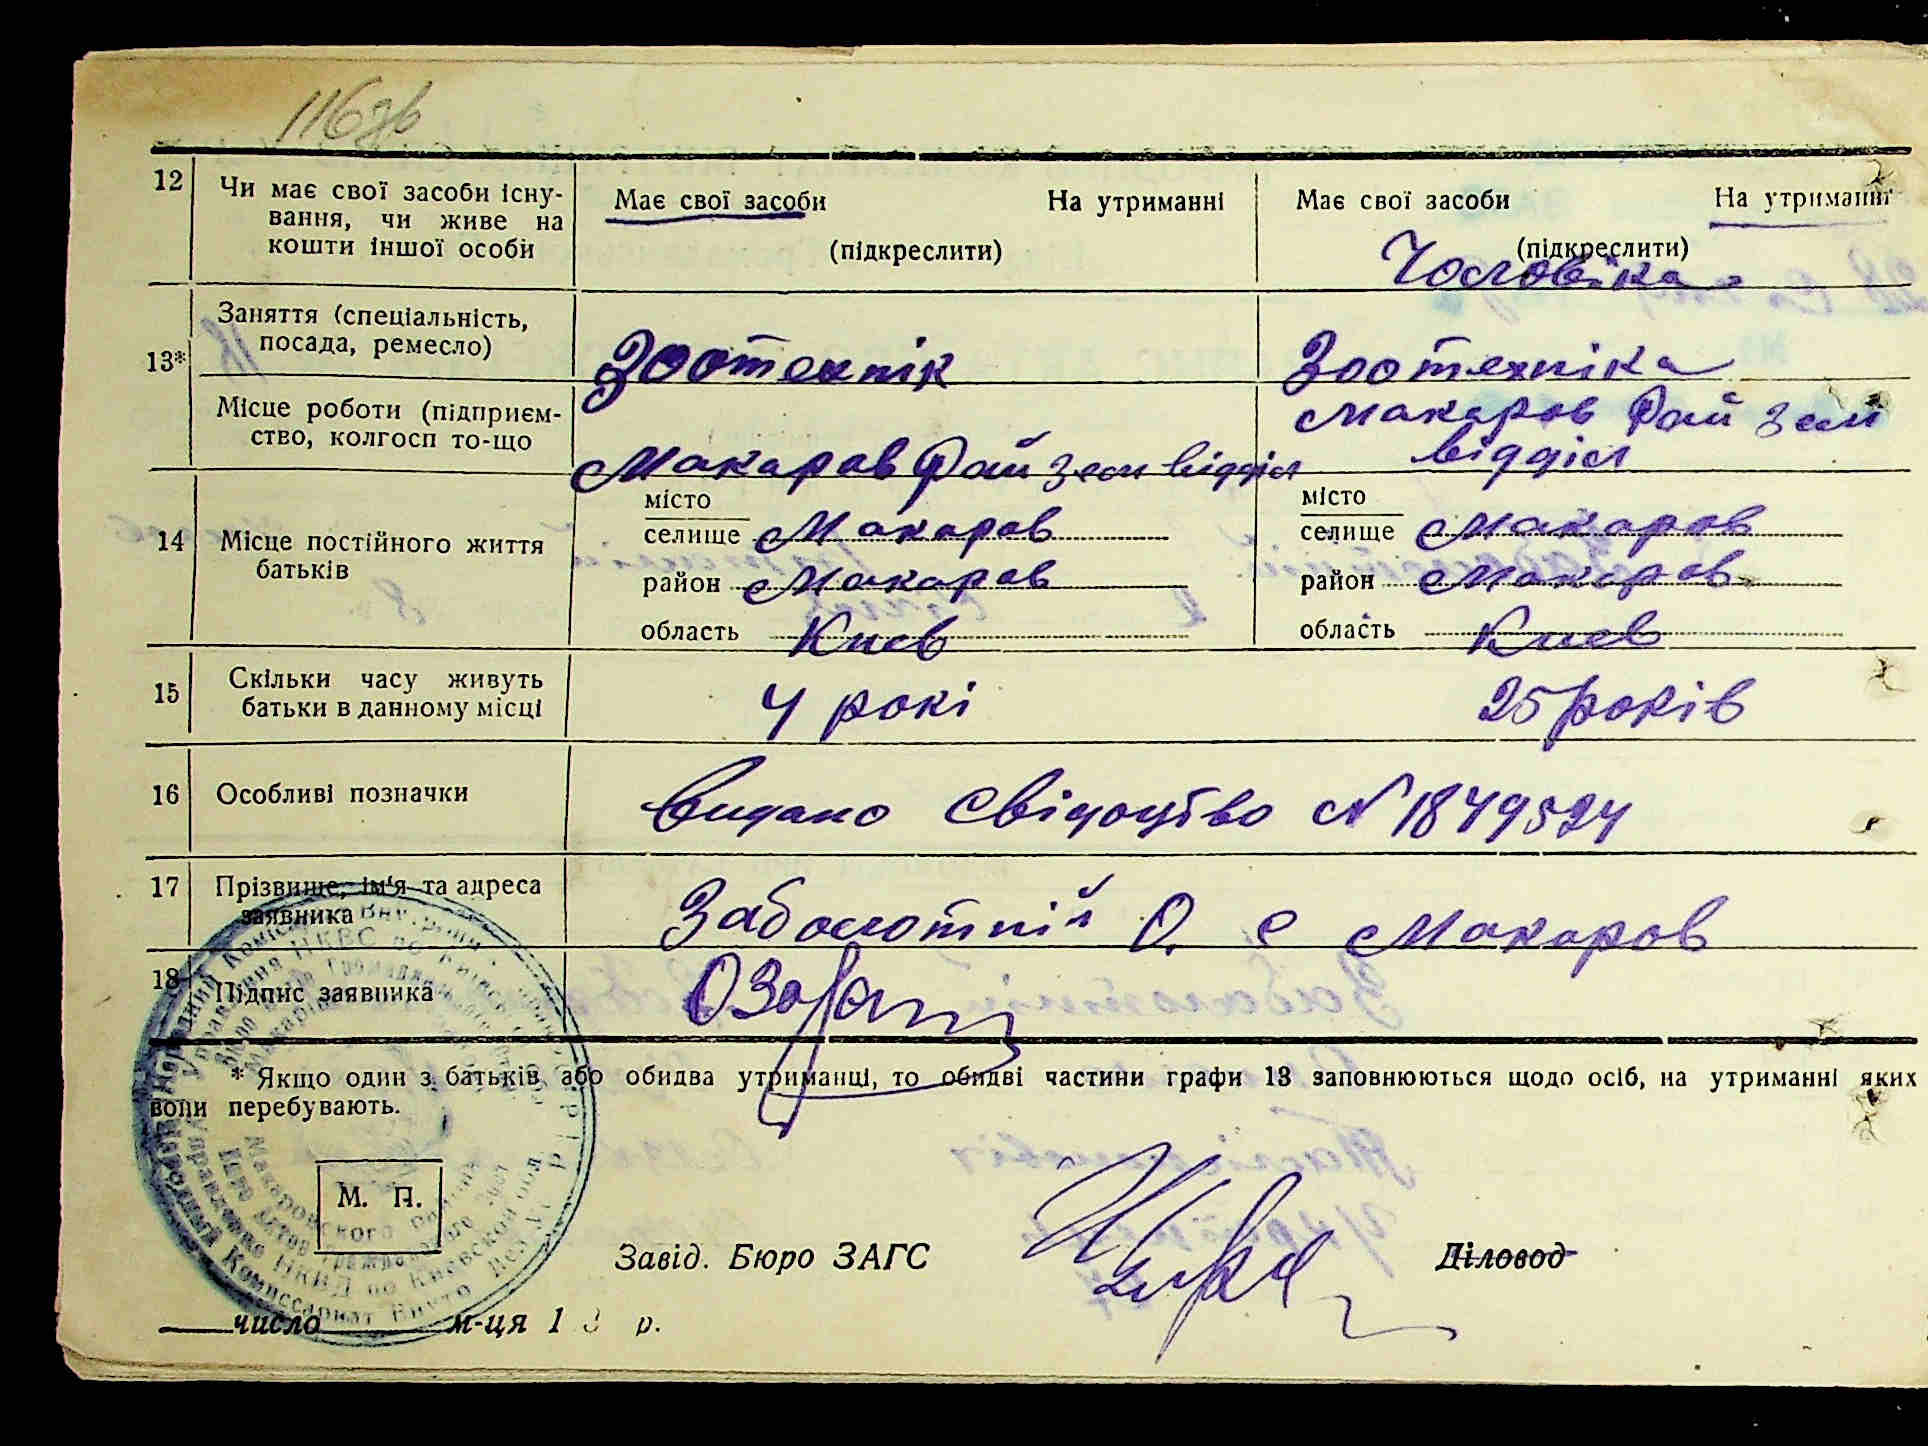 116зв
12 Чи має свої засоби існу-
вання, чи живе на
кошти іншої особи
Має свої засоби На утриманні
(підкреслити)
Має свої засоби На утриманні
(підкреслити)
Чоловіка
13* Заняття (спеціальність,
посада, ремесло)
Зоотехнік
Зоотехніка
Місце роботи (підприєм-
ство, колгосп то-що
Макаров Рай зем відділ
Макаров Рай зем
відділ
14 Місце постійного життя
батьків
місто
селище Макаров
район Макаров
область Киев
місто
селище Макаров
район Макаров
область Киев
15 Скільки часу живуть
батьки в данному місці
4 рокі
25 років
16 Особливі позначки
Видано Свідоцтво N 1849524
17 Прізвище, ім'я та адреса
заявника
Заболотній О. с Макаров
18 Підпис заявника
* Якщо один з батьків або обидва утриманці, то обидві частини графи 13 заповнюються щодо осіб, на утриманні яких
вони перебувають.
М. П.
Завід. Бюро ЗАГС
Діловод
число м-ця 1 3 р.